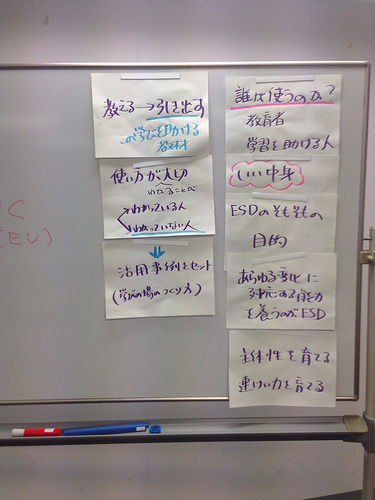 教える→引き出す
の学びを助ける
教材
使い方が大切
わたることへ
わかっている人
わかっていない人
活用事例をセット
(学びの場のつくり方)
誰が使うのか?
教育者
学習を助ける人
いい中身
ESDのそもそもの
目的
あらゆる変化に
対応する能力
を養うのがESD
主体性を育てる
連けい力を育てる